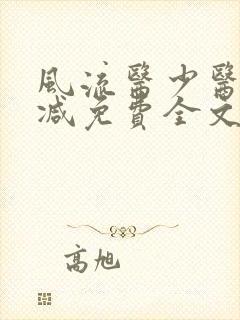 風流醫少醫
減免費全文
高旭